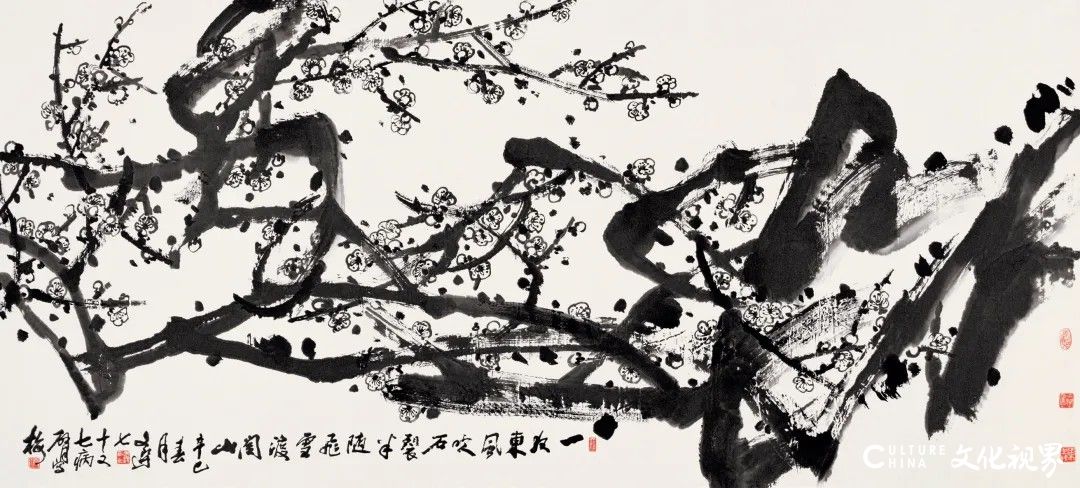 一夜東風吹石裂半随飛雪渡關山
辛巳
春月
七
十又
七病
臂寫
梅
CULTURE CHINA 文化视界